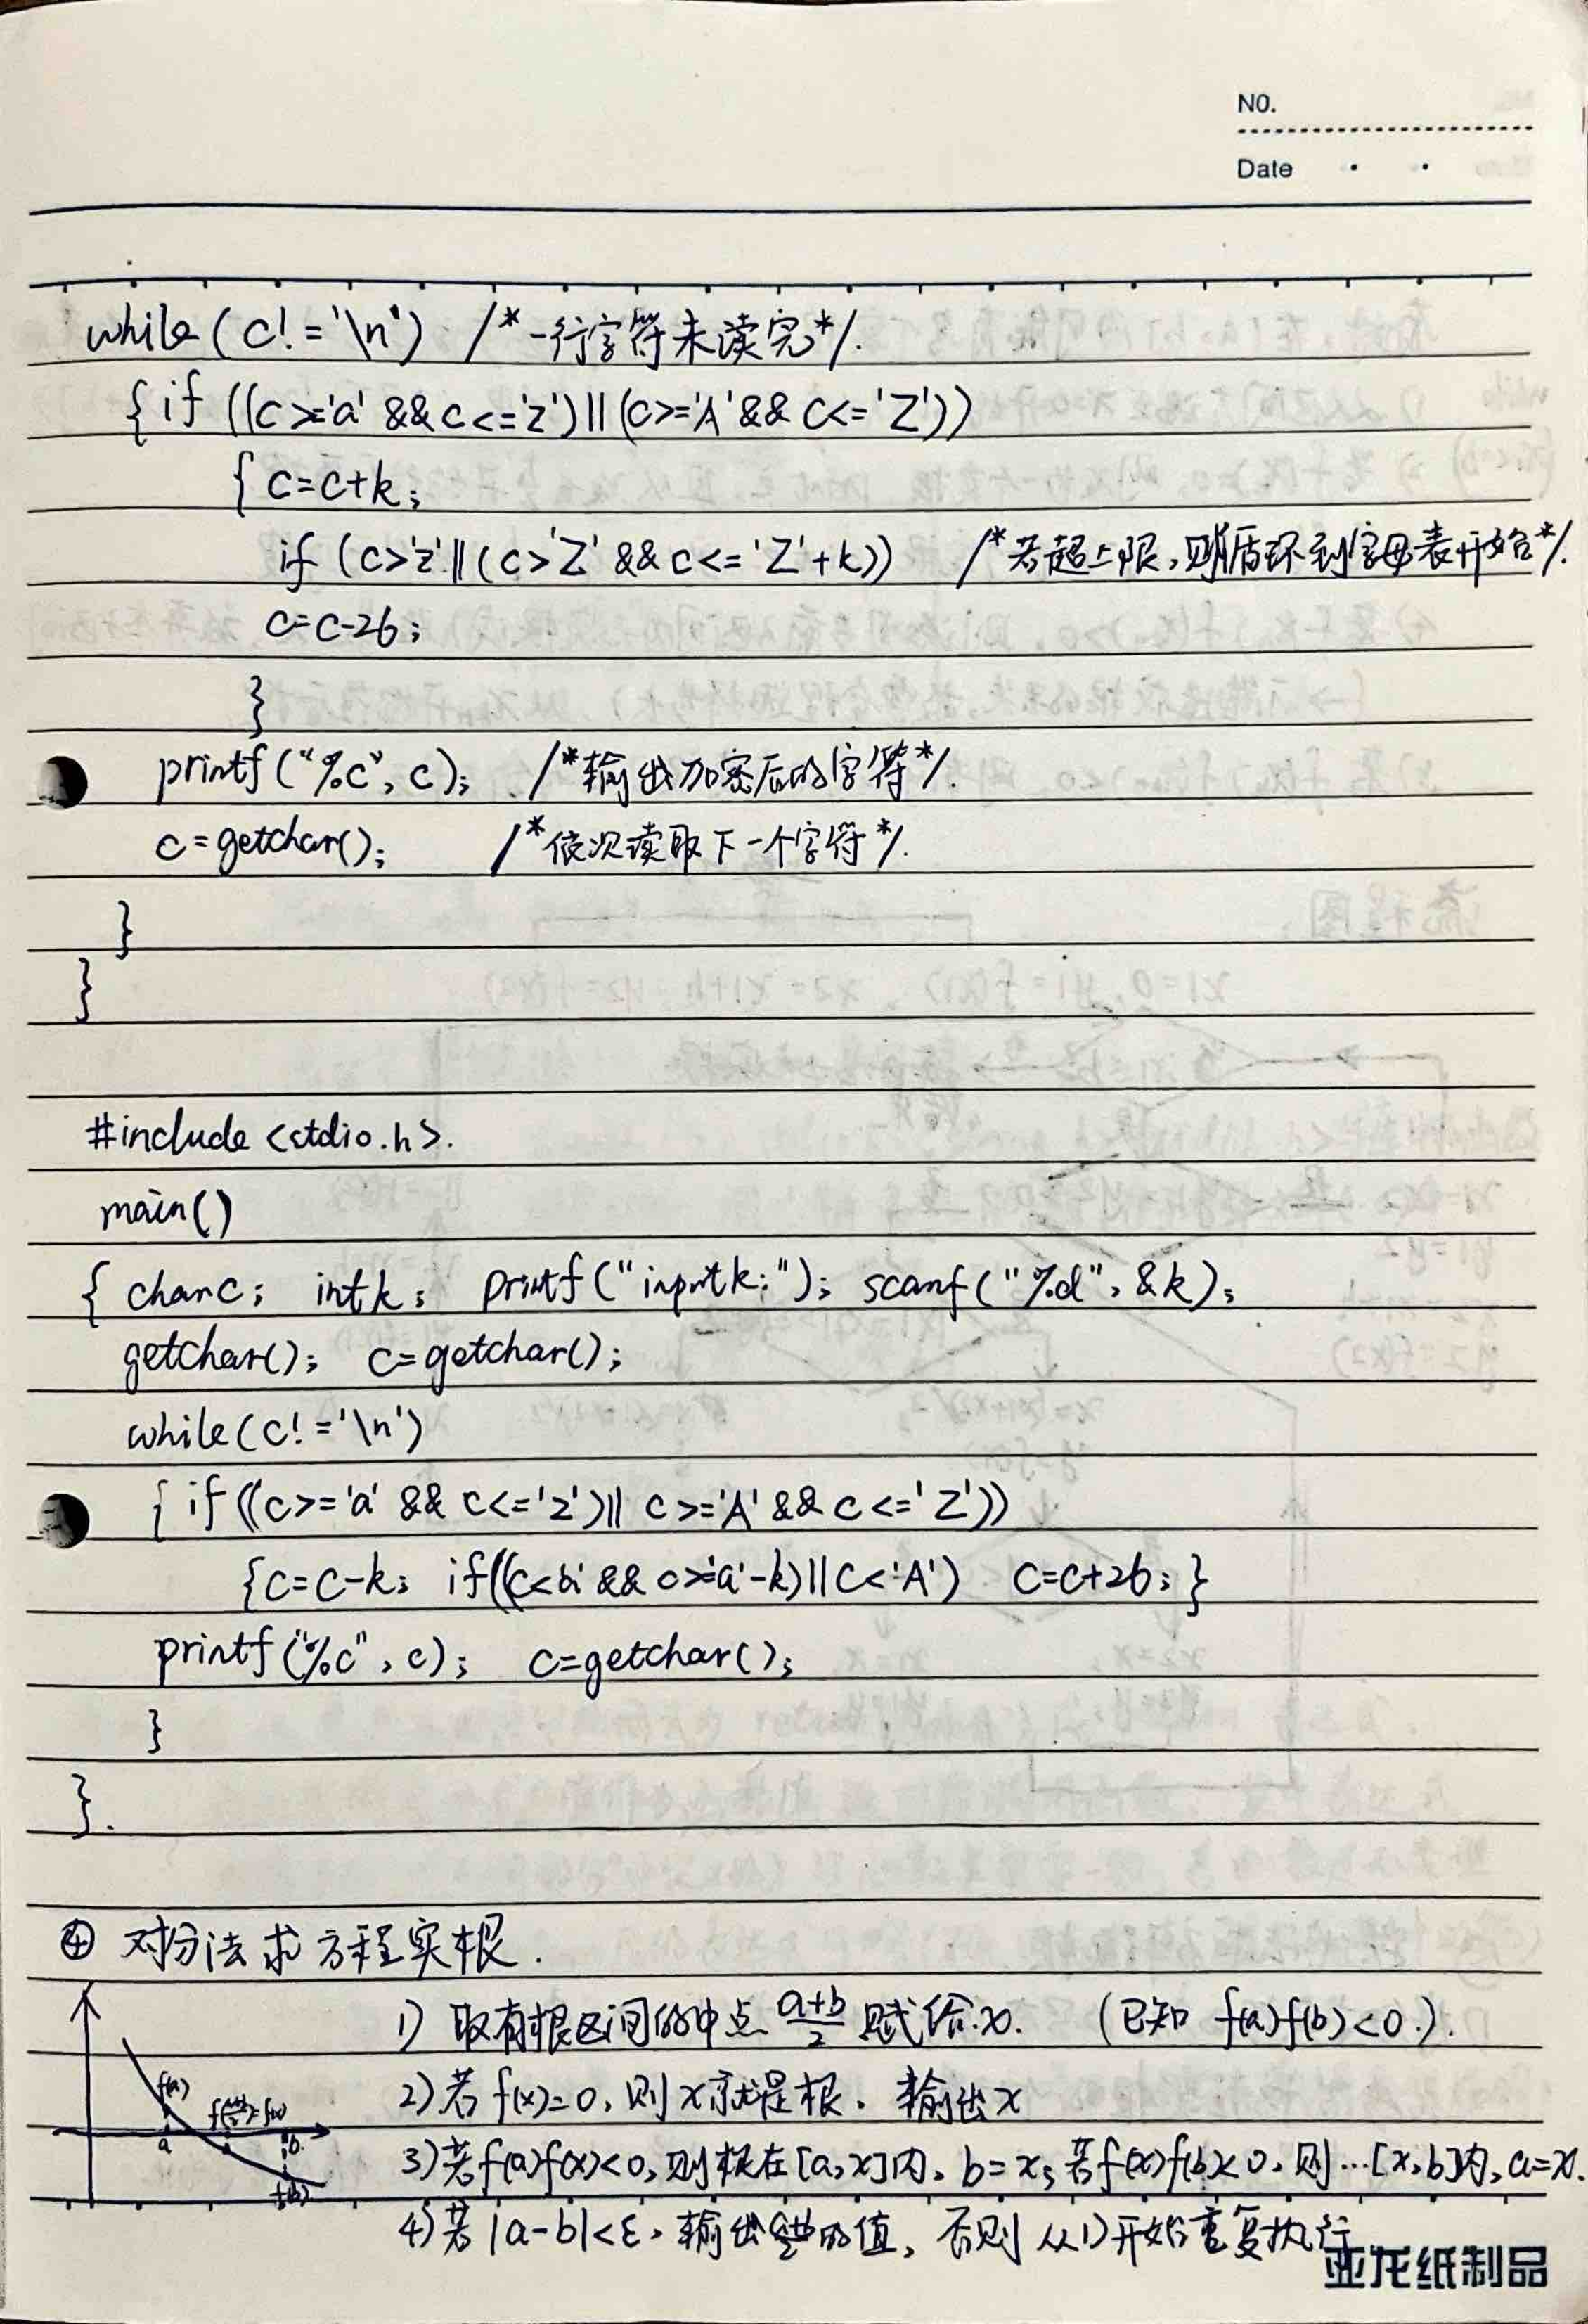 NO.
Date
while(c!='\n') /*一行字符未读完*/.
{if ((c>='a' && c<='z')||(c>='A' && c<='Z'))
{c=c+k;
if (c>'z'||(c>'Z' && c<='Z'+k)) /*若超上限,则循环到字母表开始*/.
c=c-26;
}
printf("%c",c); /*输出加密后的字符*/.
c=getchar(); /*依次读取下一个字符*/.
}
}
#include<stdio.h>.
main()
{ char c; int k; printf("input k:"); scanf("%d",&k);
getchar(); c=getchar();
while(c!='\n')
{if((c>='a' && c<='z')|| c>='A' && c<='Z'))
{c=c-k; if((c<'a' && c>='a'-k)||c<'A') c=c+26;}
printf("%c",c); c=getchar();
}
}.
④ 对分法求方程实根.
1) 取有根区间的中点 a+b/2 赋给x. (已知 f(a)f(b)<0.).
2)若f(x)=0,则x就是根.输出x
3)若f(a)f(x)<0,则根在[a,x]内,b=x;若f(x)f(b)<0,则…[x,b]内,a=x.
4)若|a-b|<ε,输出a+b/2的值,否则从1)开始重复执行
f(a)
f(a+b/2)=f(x)
a
b
f(b)
亚龙纸制品